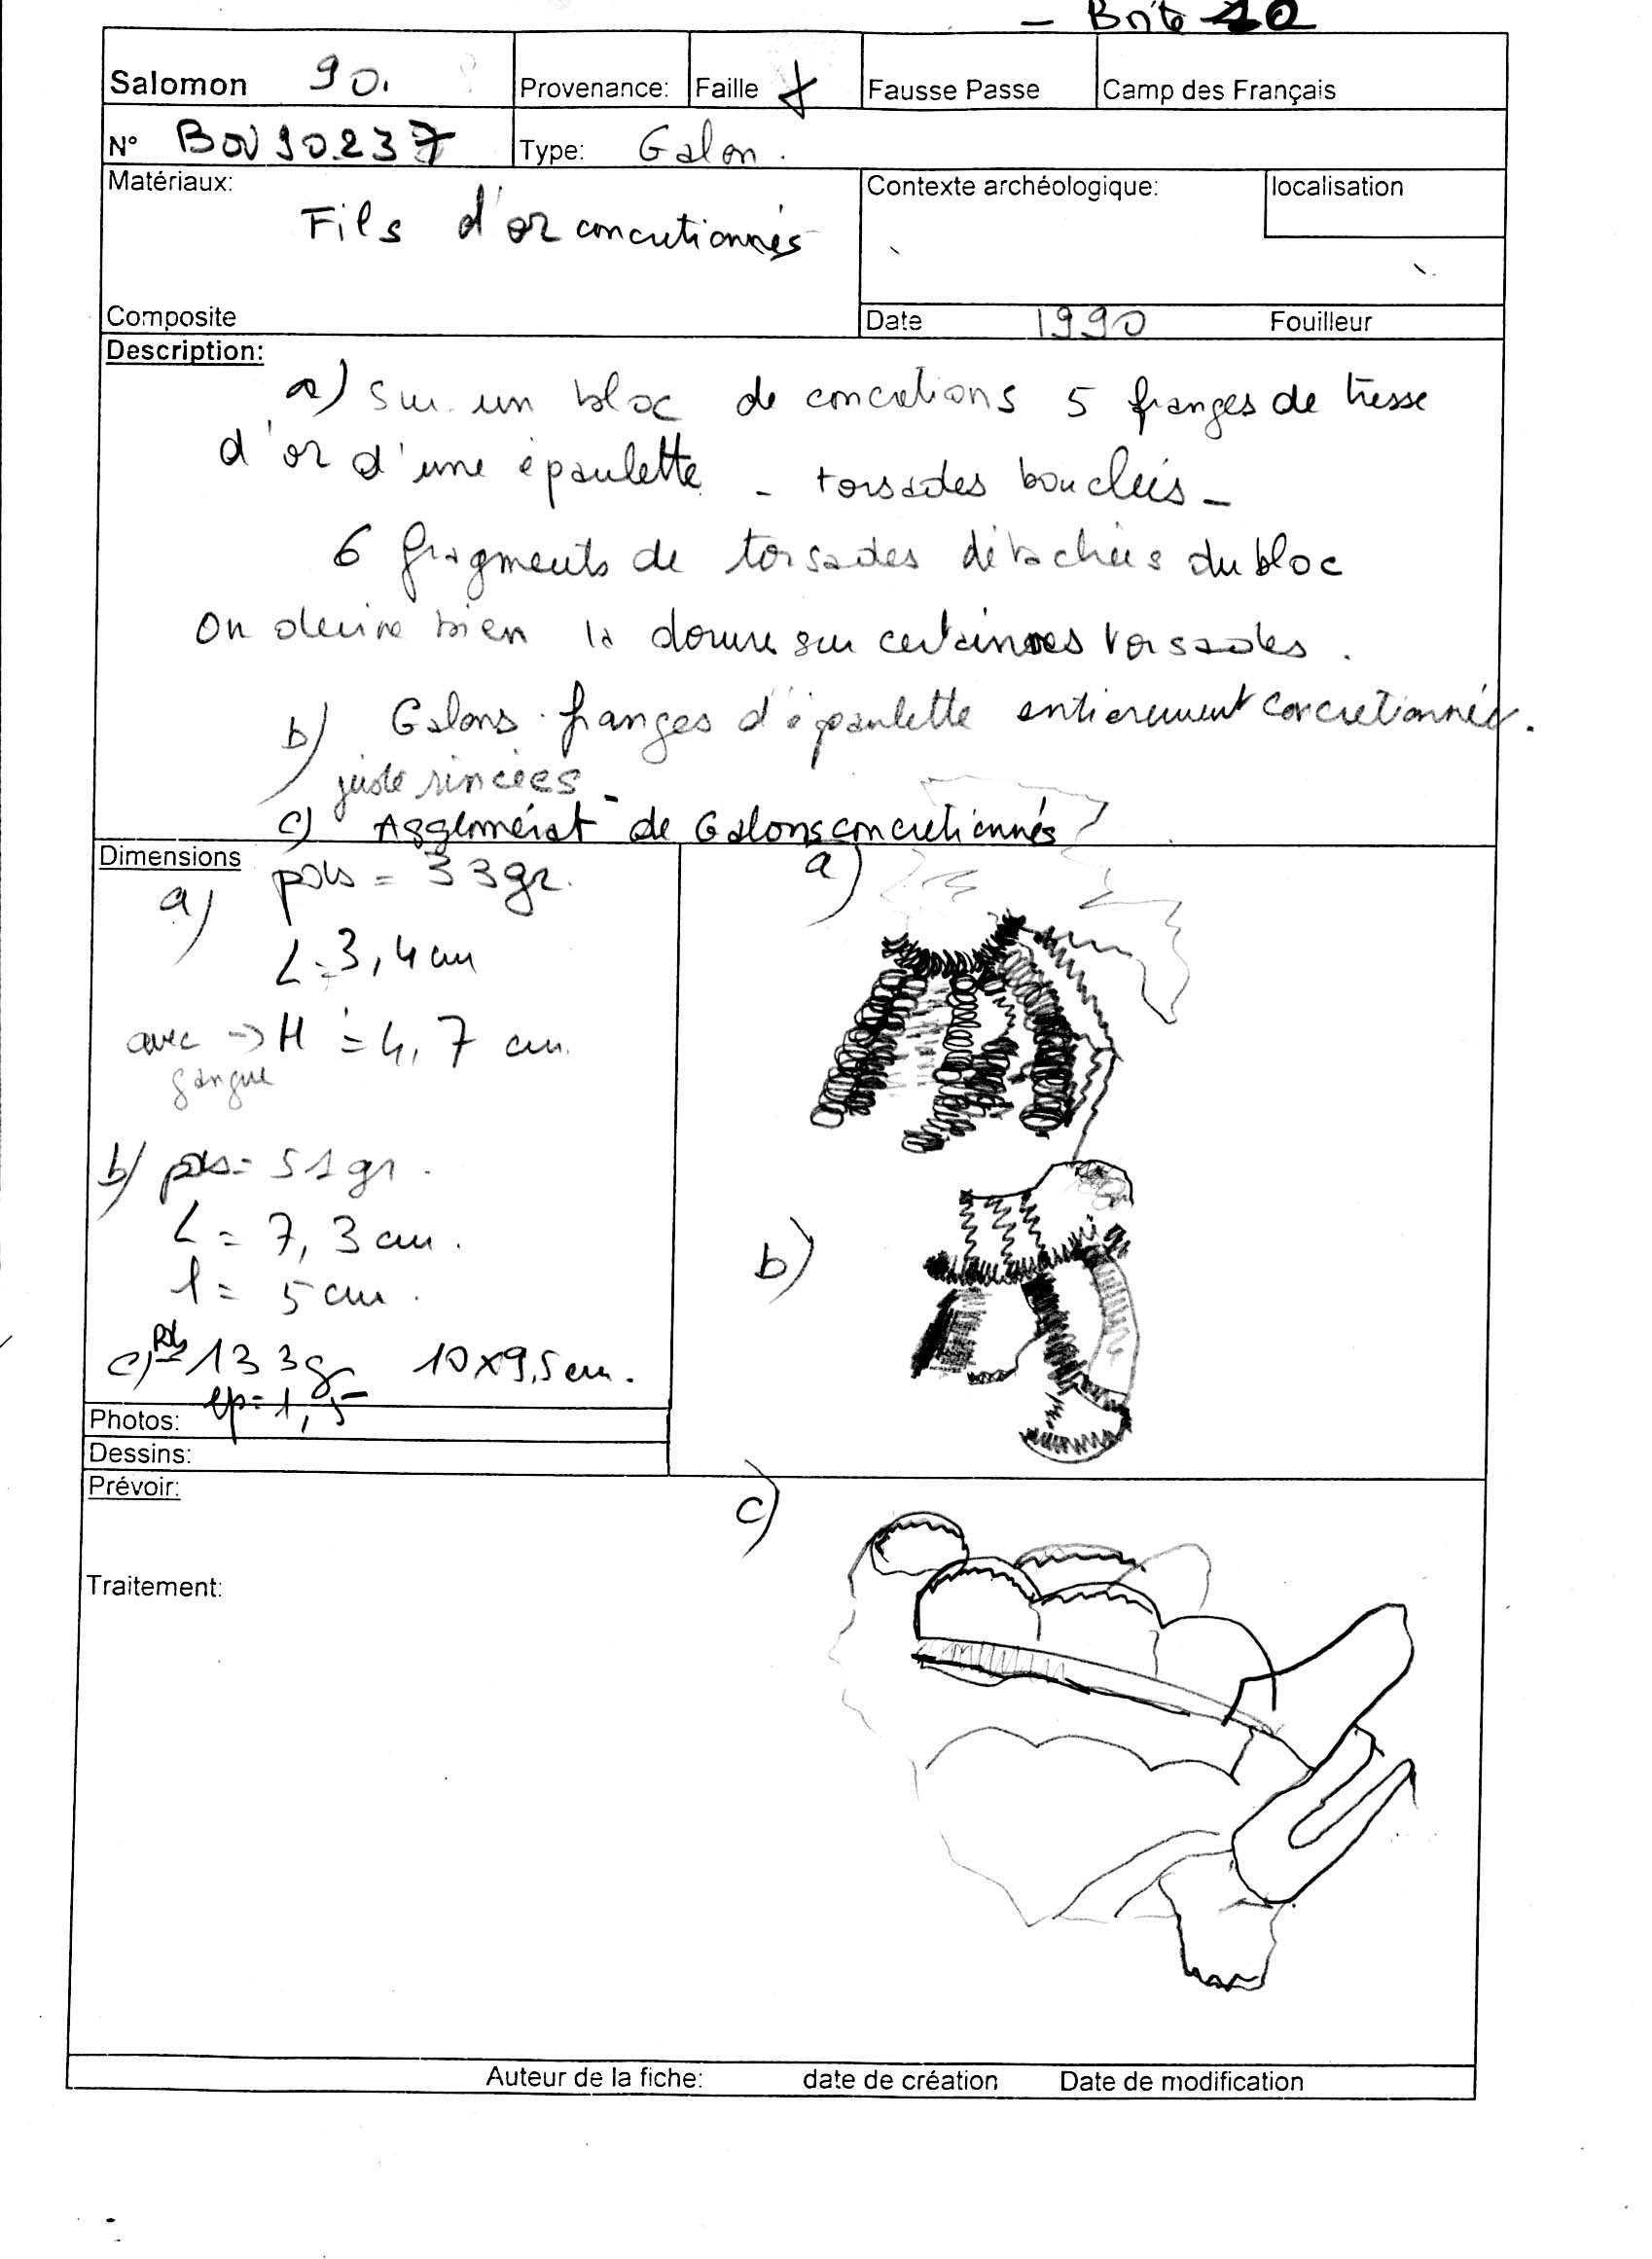 – Boite 10
Salomon 90. Provenance: Faille X Fausse Passe Camp des Français
N° BOV 90.237 Type: Galon.
Matériaux: Contexte archéologique: localisation
Fils d'or concrétionnés
Composite Date 1990 Fouilleur
Description:
a) sur un bloc de concrétions 5 franges de tresse
d'or d'une épaulette – torsades bouclées –
6 fragments de torsades détachées du bloc
On devine bien la dorure sur certaines torsades.
b) Galons franges d'épaulette entièrement concrétionnés.
juste rincées –
c) Agglomérat de Galons concrétionnés
Dimensions
a) pds = 33gr.
L = 3,4 cm
avec → H = 4,7 cm.
gangue
b) pds = 51 gr.
L = 7,3 cm.
l = 5 cm.
c) pds = 133 gr 10 x 9,5 cm.
ep = 1,5
Photos:
Dessins:
a)
b)
Prévoir:
c)
Traitement:
Auteur de la fiche: date de création Date de modification